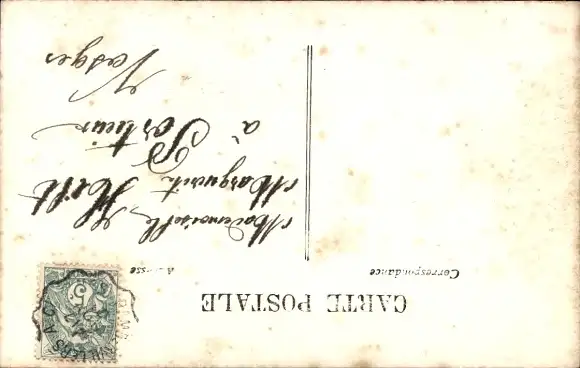 CARTE POSTALE
Correspondance
Adresse
Mademoiselle
Marguerite
à Portieux
Vosges
5